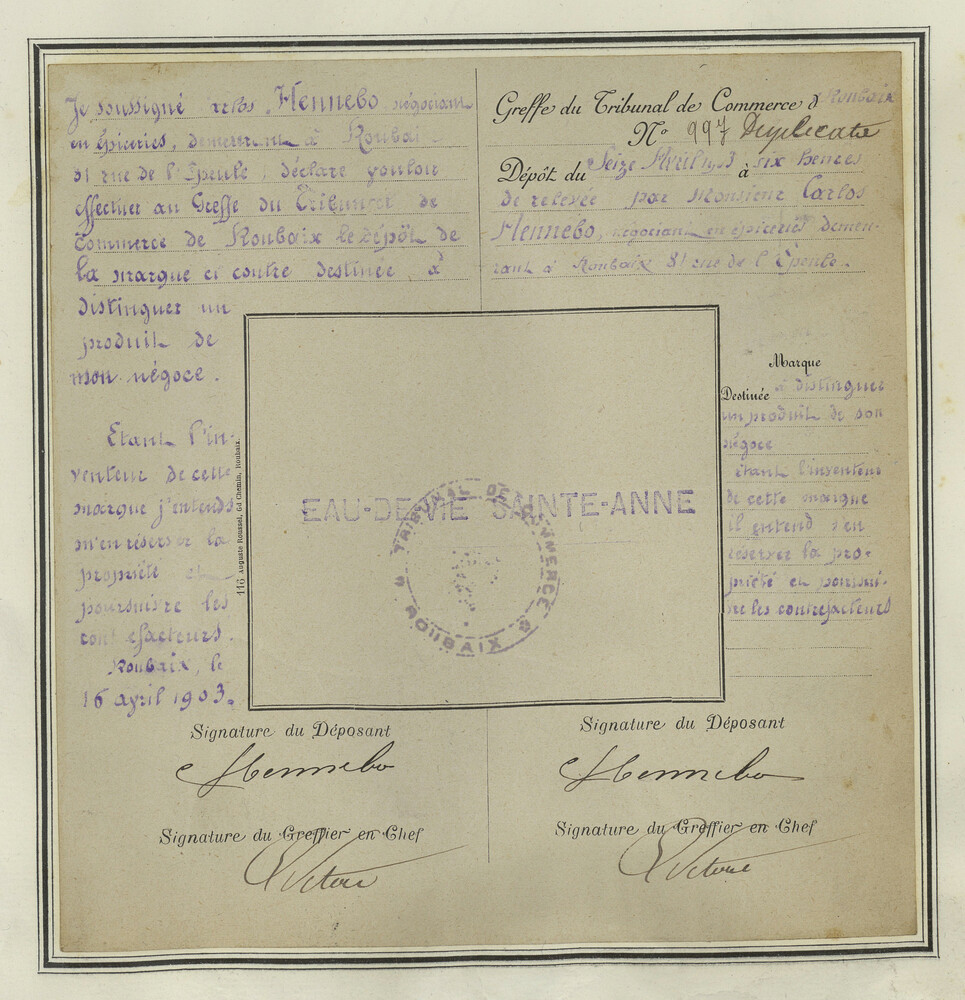 Je soussigné Carlos Hennebo négociant
en épiceries, demeurant à Roubaix
81 rue de l'Epeule, déclare vouloir
effectuer au Greffe du Tribunal de
Commerce de Roubaix le dépôt de
la marque ci contre destinée à
distinguer un
produit de
mon négoce.
Etant l'in-
venteur de cette
marque j'entends
m'en réserver la
propriété et
poursuivre les
contrefacteurs.
Roubaix, le
16 avril 1903.
Greffe du Tribunal de Commerce d Roubaix
No 997 Duplicata
Dépôt du Seize Avril 1903 à six heures
de relevée par Monsieur Carlos
Hennebo, négociant en épiceries demeu-
rant à Roubaix 81 rue de l'Epeule.
Marque
Destinée à distinguer
un produit de son
négoce
Etant l'inventeur
de cette marque
il entend s'en
réserver la pro-
priété et poursui-
vre les contrefacteurs
116 Auguste Roussel, Gd Chemin, Roubaix.
EAU-DE-VIE SAINTE-ANNE
TRIBUNAL DE COMMERCE
ROUBAIX
Signature du Déposant
CHennebo
Signature du Greffier en Chef
Signature du Déposant
CHennebo
Signature du Greffier en Chef